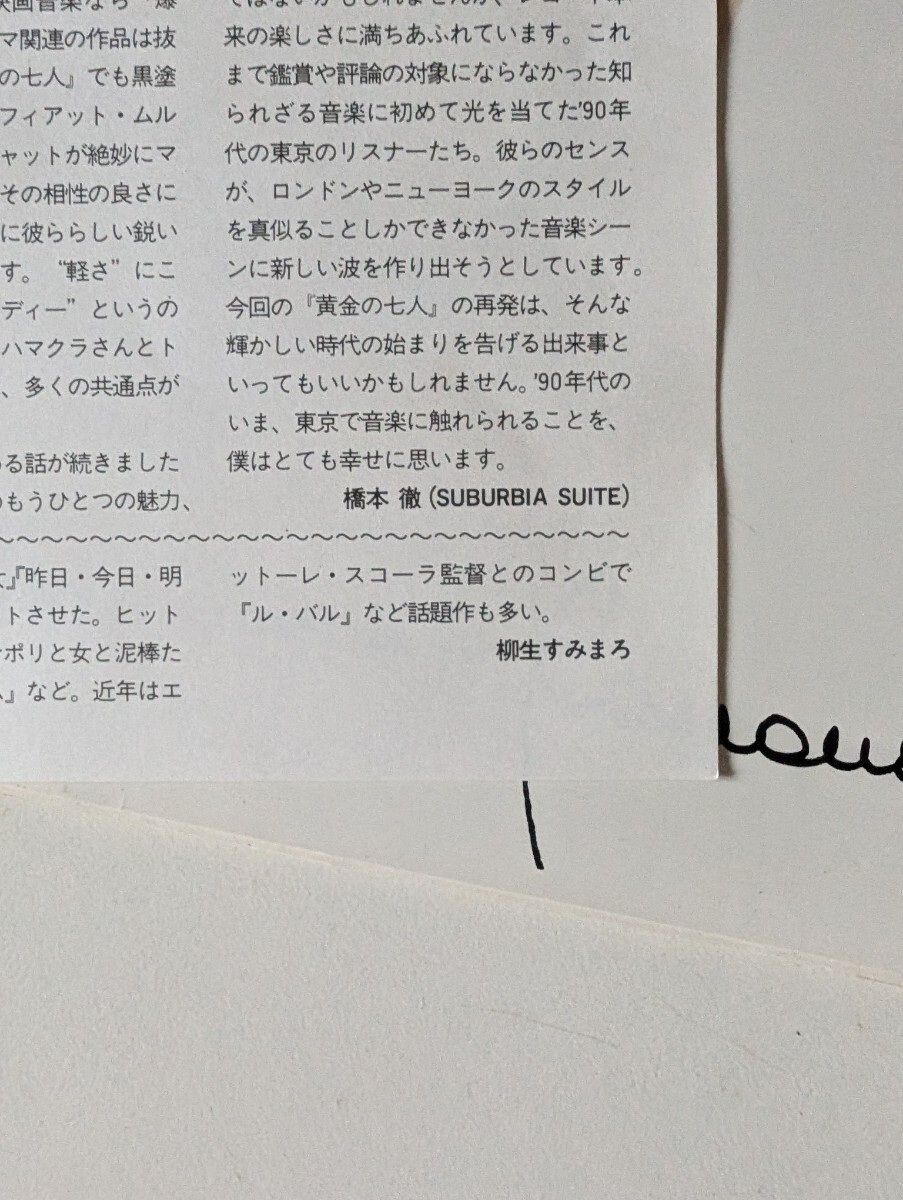 映画音楽なら“爆
マ関連の作品は抜
の七人』でも黒塗
フィアット・ムル
ャットが絶妙にマ
その相性の良さに
に彼ららしい鋭い
す。“軽さ”にこ
ディー”というの
ハマクラさんとト
、多くの共通点が
る話が続きました
のもうひとつの魅力、
来の楽しさに満ちあふれています。これ
まで鑑賞や評論の対象にならなかった知
られざる音楽に初めて光を当てた'90年
代の東京のリスナーたち。彼らのセンス
が、ロンドンやニューヨークのスタイル
を真似ることしかできなかった音楽シー
ンに新しい波を作り出そうとしています。
今回の『黄金の七人』の再発は、そんな
輝かしい時代の始まりを告げる出来事と
いってもいいかもしれません。'90年代の
いま、東京で音楽に触れられることを、
僕はとても幸せに思います。
橋本 徹(SUBURBIA SUITE)
女』『昨日・今日・明
トさせた。ヒット
ナポリと女と泥棒た
』など。近年はエ
ットーレ・スコーラ監督とのコンビで
『ル・バル』など話題作も多い。
柳生すみまろ